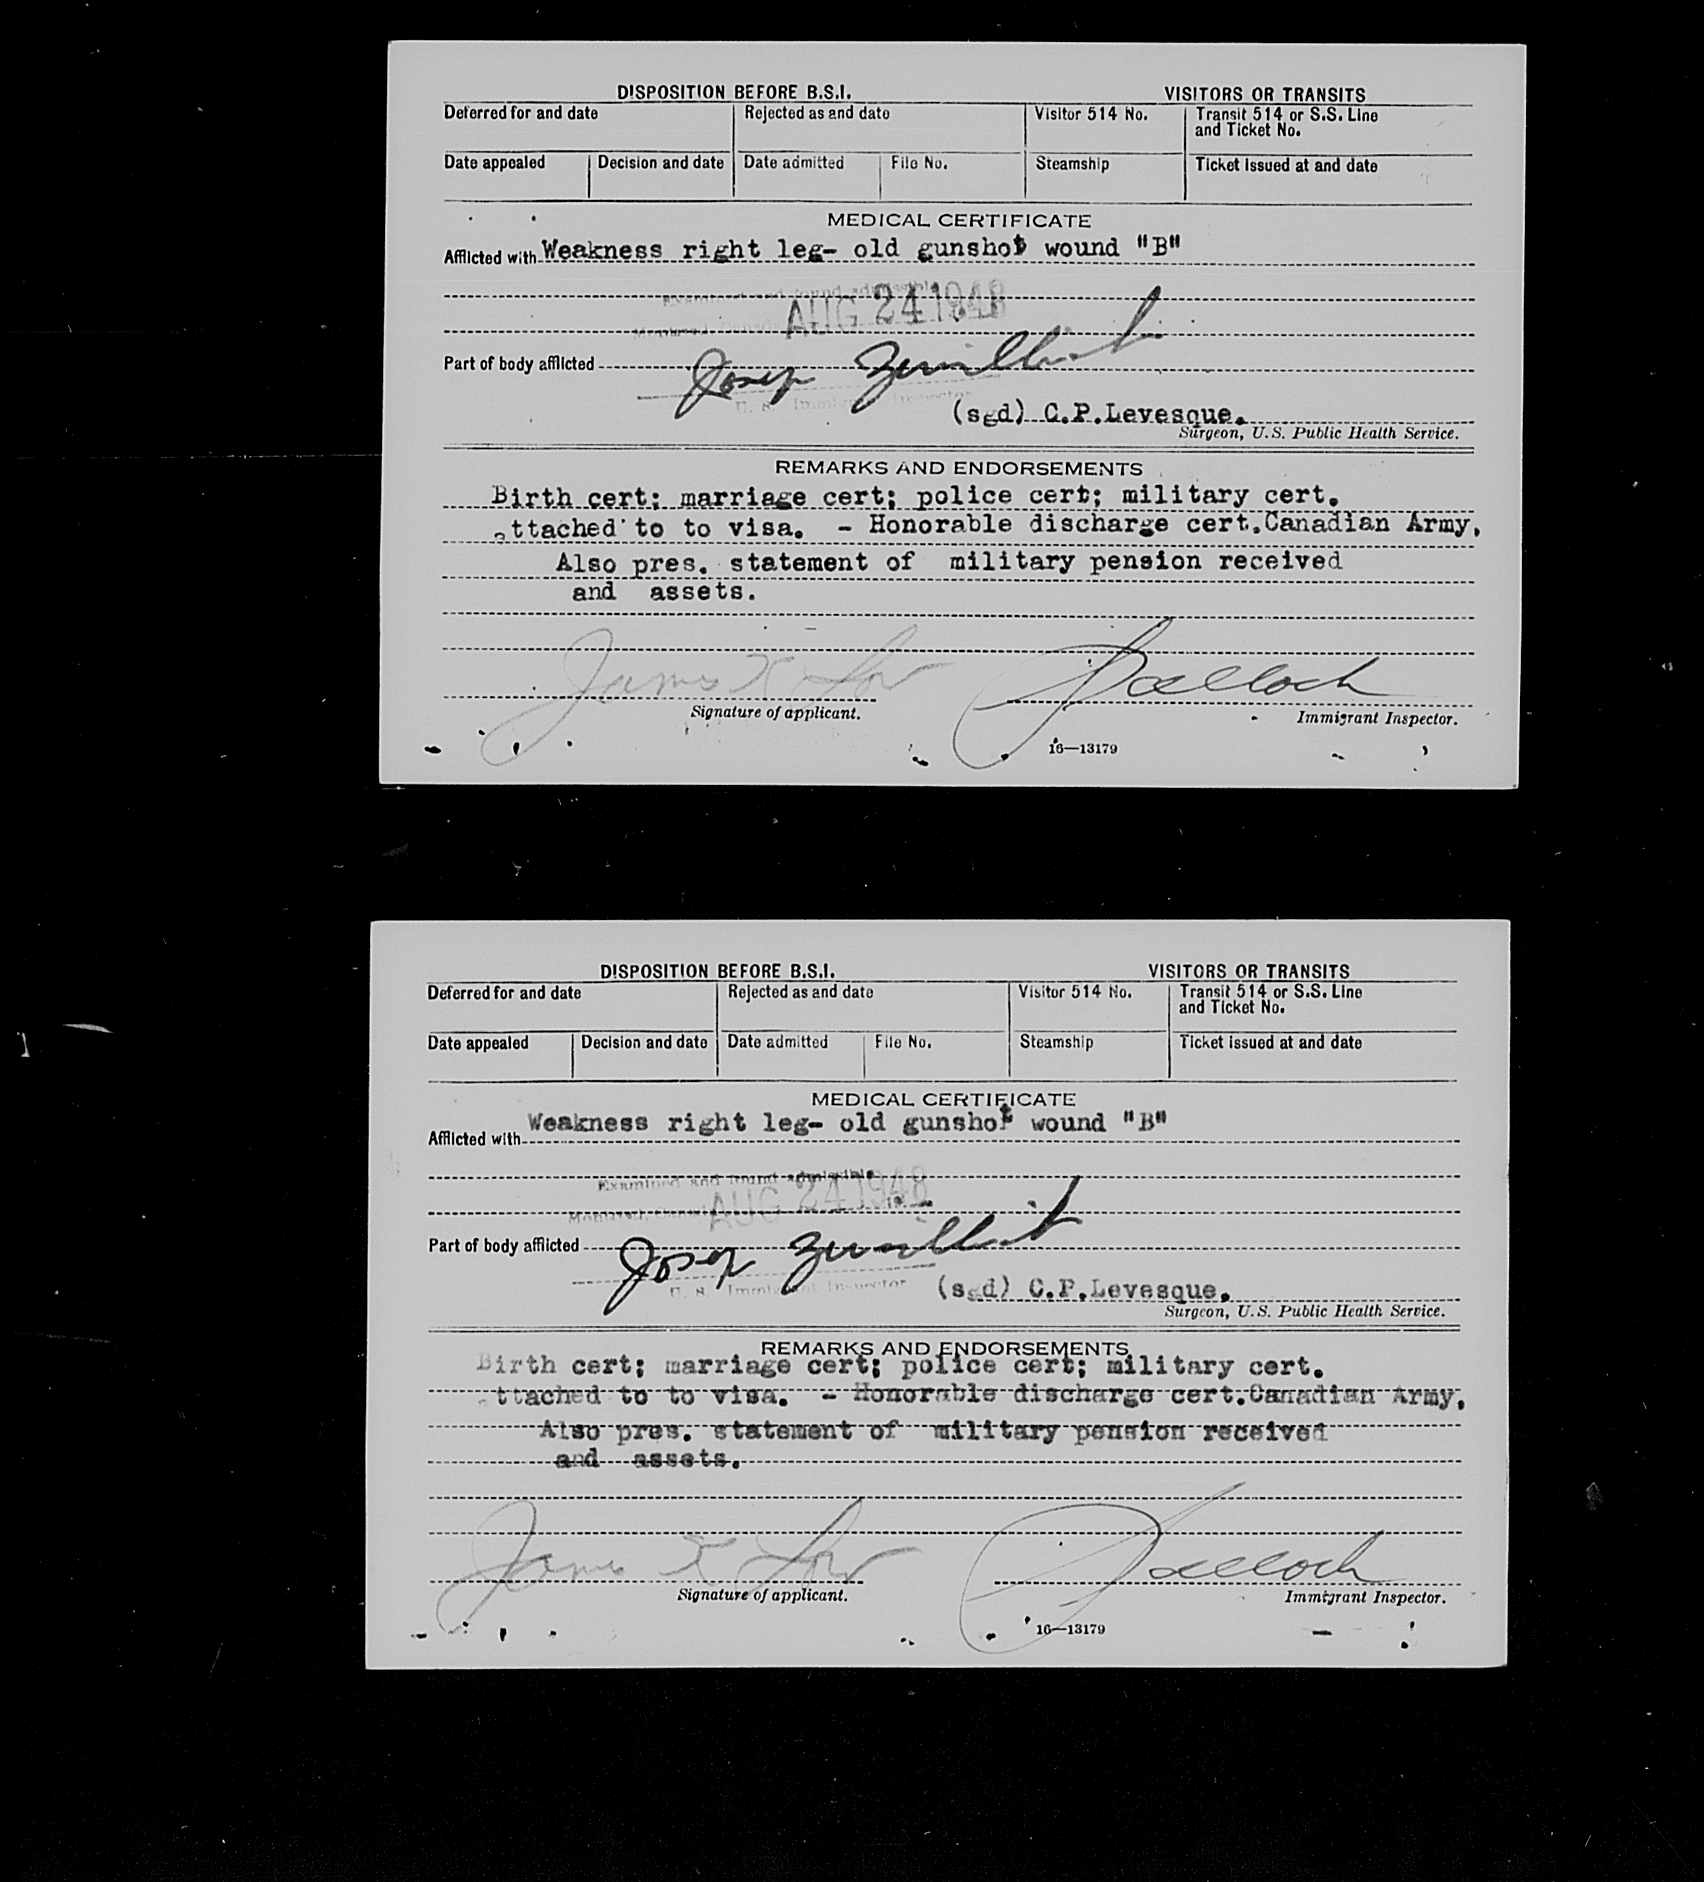 DISPOSITION BEFORE B.S.I. VISITORS OR TRANSITS
Deferred for and date Rejected as and date Visitor 514 No. Transit 514 or S.S. Line
and Ticket No.
Date appealed Decision and date Date admitted File No. Steamship Ticket issued at and date
MEDICAL CERTIFICATE
Afflicted with Weakness right leg- old gunshot wound "B"
Examined and found admissible
AUG 24 1948
Montreal, Canada
Part of body afflicted Josep
U. S. Immigrant Inspector
(sgd) C.P.Levesque.
Surgeon, U.S. Public Health Service.
REMARKS AND ENDORSEMENTS
Birth cert; marriage cert; police cert; military cert.
attached to to visa. - Honorable discharge cert.Canadian Army.
Also pres. statement of military pension received
and assets.
James
Signature of applicant. Immigrant Inspector.
16—13179
DISPOSITION BEFORE B.S.I. VISITORS OR TRANSITS
Deferred for and date Rejected as and date Visitor 514 No. Transit 514 or S.S. Line
and Ticket No.
Date appealed Decision and date Date admitted File No. Steamship Ticket issued at and date
MEDICAL CERTIFICATE
Afflicted with Weakness right leg- old gunshot wound "B"
Examined and found admissible
AUG 24 1948
Montreal, Canada
Part of body afflicted Josep
U. S. Immigrant Inspector
(sgd) C.P.Levesque.
Surgeon, U.S. Public Health Service.
REMARKS AND ENDORSEMENTS
Birth cert; marriage cert; police cert; military cert.
attached to to visa. - Honorable discharge cert.Canadian Army.
Also pres. statement of military pension received
and assets.
James
Signature of applicant. Immigrant Inspector.
16—13179